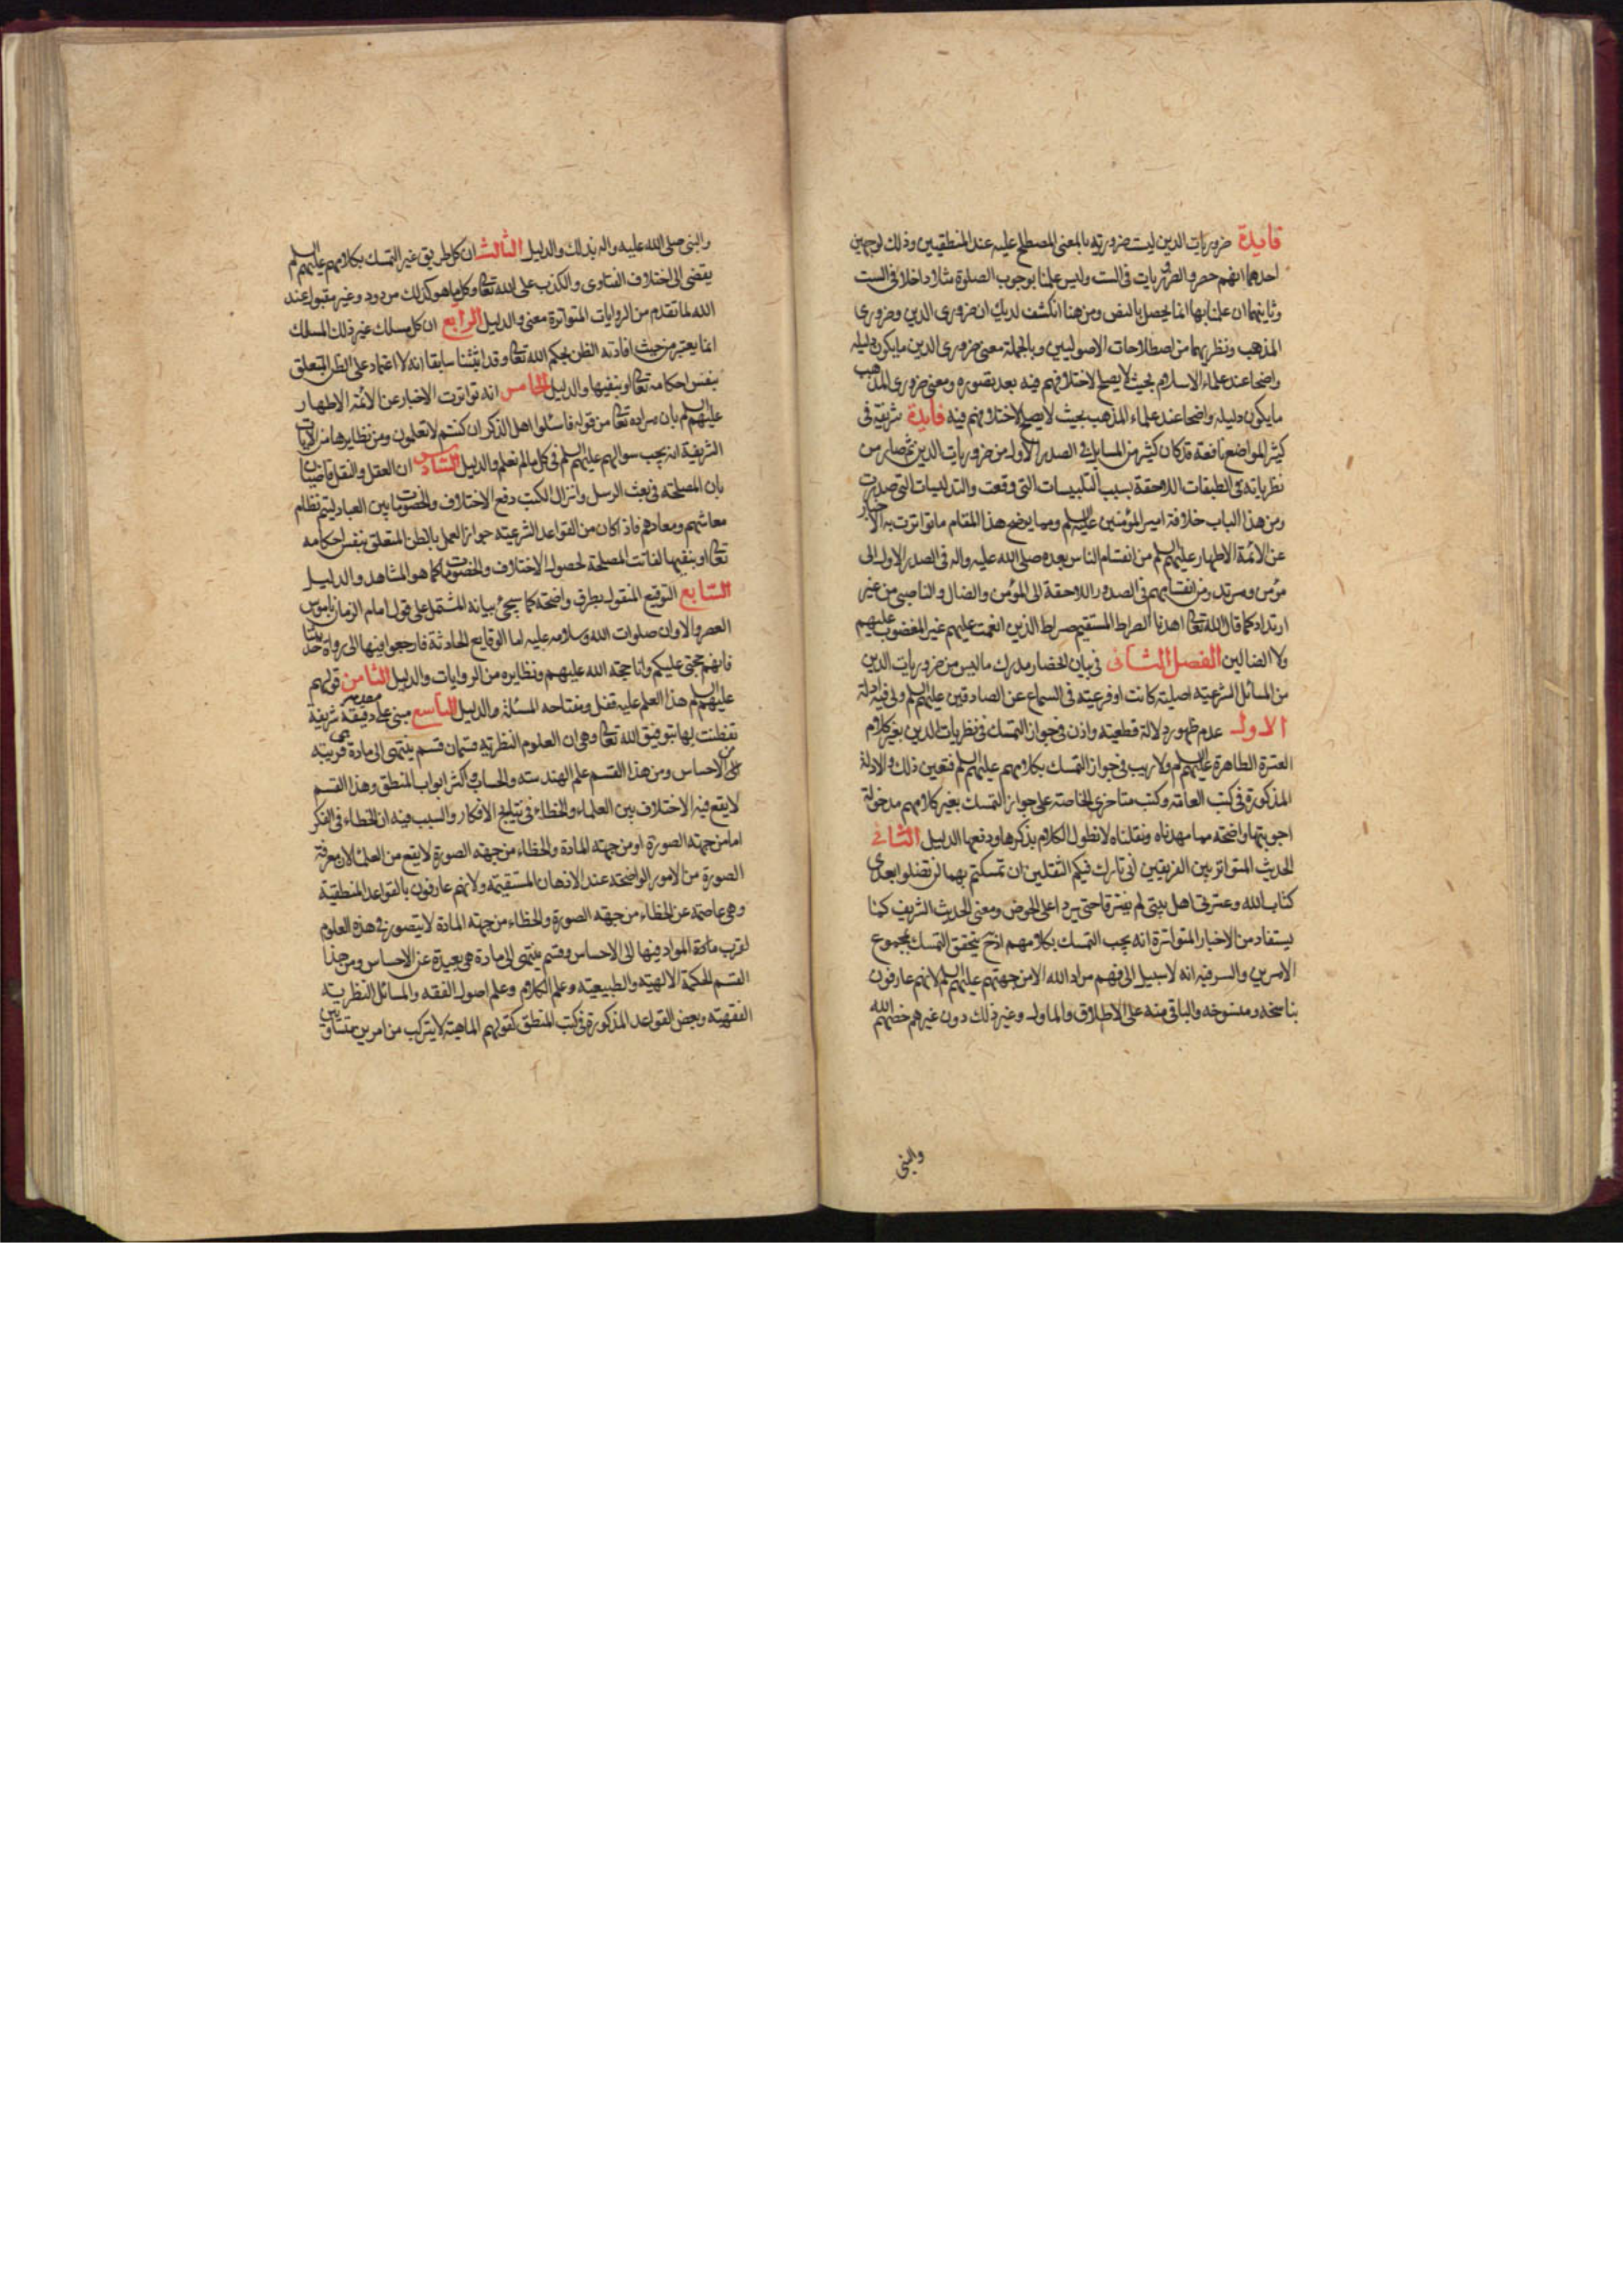 فايدة ضروريات الدين ليست ضرورية بالمعنى المصطلح عليه عند المنطقيين وذلك لوجهين
احدهما انهم حصروا الضروريات في الست وليس علمنا بوجوب الصلوة مثلا داخلا في الست
وثانيهما ان علمنا بها انما يحصل بالنص ومن هنا انكشف لديك ان ضروري الدين وضروري
المذهب ونظريهما من اصطلاحات الاصوليين وبالجملة معنى ضروري الدين ما يكون دليله
واضحا عند علماء الاسلام بحيث لا يصلح لاختلافهم فيه بعد تصوره ومعنى ضروري المذهب
ما يكون دليله واضحا عند علماء المذهب بحيث لا يصلح لاختلافهم فيه فايدة شريفة في
كثير المواضع نافعة قد كان كثير من المسايل في الصدر الاول من ضروريات الدين ثم صار من
نظرياته في الطبقات اللاحقة بسبب التلبيسات التي وقعت والتدليسات التي صدرت
ومن هذا الباب خلافة امير المؤمنين عليه السلم ومما يوضح هذا المقام ما تواترت به الاخبار
عن الائمة الاطهار عليهم السلم من انقسام الناس بعده صلى الله عليه واله في الصدر الاول الى
مؤمن ومرتد ومن انقسامهم في الصدور اللاحقة الى المؤمن والضال والناصبي من غير
ارتداد كما قال الله تعالى اهدنا الصراط المستقيم صراط الذين انعمت عليهم غير المغضوب عليهم
ولا الضالين الفصل الثاني في بيان انحصار مدرك ما ليس من ضروريات الدين
من المسائل الشرعية اصلية كانت او فرعية في السماع عن الصادقين عليهم السلم ولي فيه ادلة
الاول عدم ظهور دلالة قطعية واذن في جواز التمسك في نظريات الدين بغير كلام
العترة الطاهرة عليهم السلم ولا ريب في جواز التمسك بكلامهم عليهم السلم فتعين ذلك والادلة
المذكورة في كتب العامة وكتب متاخري الخاصة على جواز التمسك بغير كلامهم مدخولة
اجوبتها واضحة مما مهدناه ونقلناه لا نطول الكلام بذكرها ودفعها الدليل الثاني
الحديث المتواتر بين الفريقين اني تارك فيكم الثقلين ان تمسكتم بهما لن تضلوا بعدي
كتاب الله وعترتي اهل بيتي لم يفترقا حتى يردا على الحوض ومعنى الحديث الشريف كما
يستفاد من الاخبار المتواترة انه يجب التمسك بكلامهم اذ ح يتحقق التمسك بمجموع
الامرين والسر فيه انه لا سبيل الى فهم مراد الله الا من جهتهم عليهم السلم لانهم عارفون
بناسخه ومنسوخه والباقي منه على الاطلاق والماول وغير ذلك دون غيرهم خصهم الله
والنبي
والنبي صلى الله عليه واله بذلك والدليل الثالث ان كل طريق غير التمسك بكلامهم عليهم السلم
يفضي الى اختلاف الفتاوى والكذب على الله تعالى وكل ما هو كذلك مردود وغير مقبول عند
الله لما تقدم من الروايات المتواترة معنى والدليل الرابع ان كل مسلك غير ذلك المسلك
انما يعتبر من حيث افادته الظن بحكم الله تعالى وقد اثبتنا سابقا انه لا اعتماد على الظن المتعلق
بنفس احكامه تعالى او بنفيها والدليل الخامس انه تواترت الاخبار عن الائمة الاطهار
عليهم السلم بان مراده تعالى من قوله فاسئلوا اهل الذكر ان كنتم لا تعلمون ومن نظايرها من الايات
الشريفة انه يجب سوالهم عليهم السلم في كل ما لم نعلم والدليل السادس ان العقل والنقل قاضيان
بان المصلحة في بعث الرسل وانزال الكتب دفع الاختلاف والخصومات بين العباد ليتم نظام
معاشهم ومعادهم فاذا كان من القواعد الشرعية جواز العمل بالظن المتعلق بنفس احكامه
تعالى او بنفيها لفاتت المصلحة لحصول الاختلاف والخصومات كما هو المشاهد والدليل
السابع التوقيع المنقول بطرق واضحة كما سيجئ بيانه المشتمل على قول امام الزمان ناموس
العصر والاوان صلوات الله وسلامه عليه اما الوقايع الحادثة فارجعوا فيها الى رواة حديثنا
فانهم حجتي عليكم وانا حجة الله عليهم ونظايره من الروايات والدليل الثامن قولهم
عليهم السلم هذا العلم عليه قفل ومفتاحه المسئلة والدليل التاسع مبني على مقدمة دقيقة شريفة
تفطنت لها بتوفيق الله تعالى وهي ان العلوم النظرية قسمان قسم ينتهي الى مادة هي قريبة
من الاحساس ومن هذا القسم علم الهندسة والحساب واكثر ابواب المنطق وهذا القسم
لا يقع فيه الاختلاف بين العلماء والخطاء في نتايج الافكار والسبب فيه ان الخطاء في الفكر
اما من جهة الصورة او من جهة المادة والخطاء من جهة الصورة لا يقع من العلماء لان معرفة
الصورة من الامور الواضحة عند الاذهان المستقيمة ولانهم عارفون بالقواعد المنطقية
وهي عاصمة عن الخطاء من جهة الصورة والخطاء من جهة المادة لا يتصور في هذه العلوم
لقرب مادة المواد فيها الى الاحساس وقسم ينتهي الى مادة هي بعيدة عن الاحساس ومن هذا
القسم الحكمة الالهية والطبيعية وعلم الكلام وعلم اصول الفقه والمسائل النظرية
الفقهية وبعض القواعد المذكورة في كتب المنطق كقولهم الماهية لا يتركب من امرين متساويين